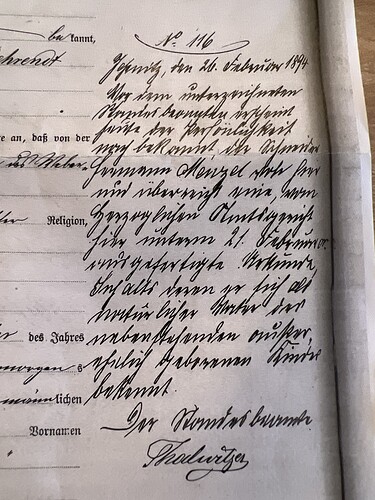 be kannt,
ehrendt
e an, daß von der
des Weber
Religion,
des Jahres
morgen s
männlichen
Vornamen
No 116
Jeßnitz, den 26. Februar 1894
Vor dem unterzeichneten
Standesbeamten erscheint
heute der Persönlichkeit
nach bekannt, der Schneider
Hermann Menzel von hier
und überreicht eine, vom
Herzoglichen Amtsgericht
hier unterm 21. Februar cr.
ausgefertigte Urkunde,
Inhalts deren er sich als
natürlicher Vater des
nebenstehenden außer,
ehelich geborenen Kindes
bekennt.
Der Standesbeamte.
Thalwitzer